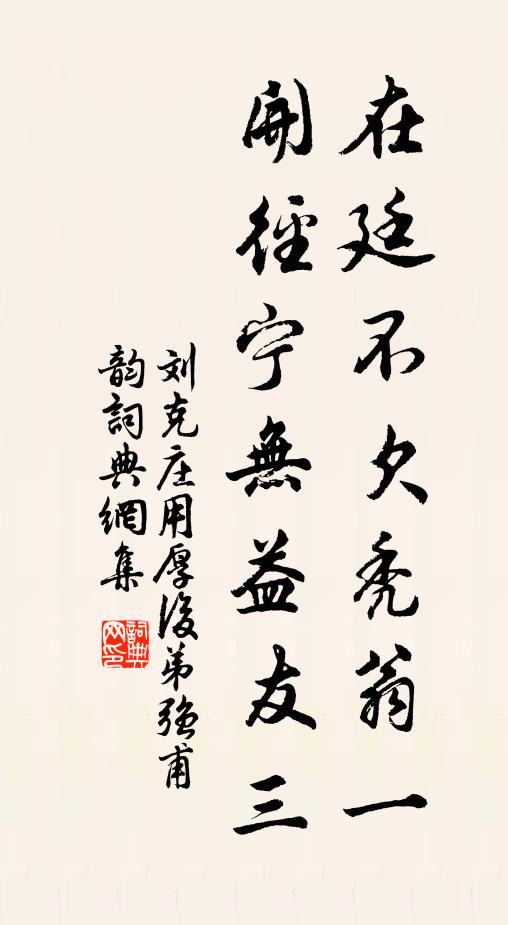 在廷不欠秃翁一
開徑宁無益友三
刘克庄用厚後弟強甫
韵詞典網集
詞典网印